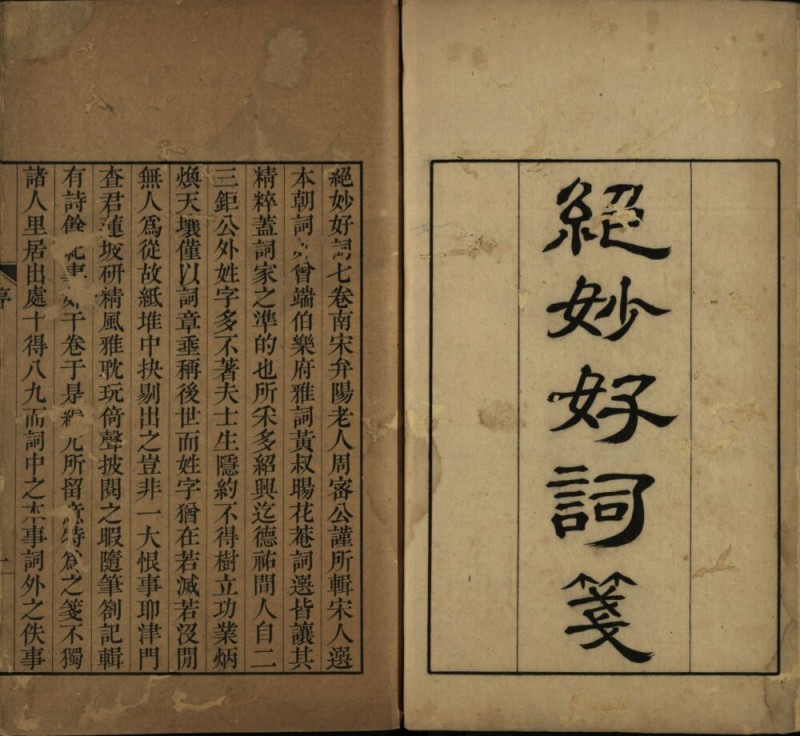 絕妙好詞箋
絕妙好詞七卷南宋弁陽老人周密公謹所輯宋人選
本朝詞曾端伯樂府雅詞黃叔暘花菴詞選皆讓其
精粹蓋詞家之準的也所釆多紹興迄德祐間人自二
三鉅公外姓字多不著夫士生隱約不得樹立功業炳
煥天壤僅以詞章垂稱後世而姓字猶在若滅若沒間
無人爲從故紙堆中抉剔出之豈非一大恨事耶津門
查君蓮坡研精風雅耽玩倚聲披閱之暇隨筆劄記輯
有詩餘干卷于是所留之箋不獨
諸人里居出處十得八九而詞中之本事詞外之佚事
序
一